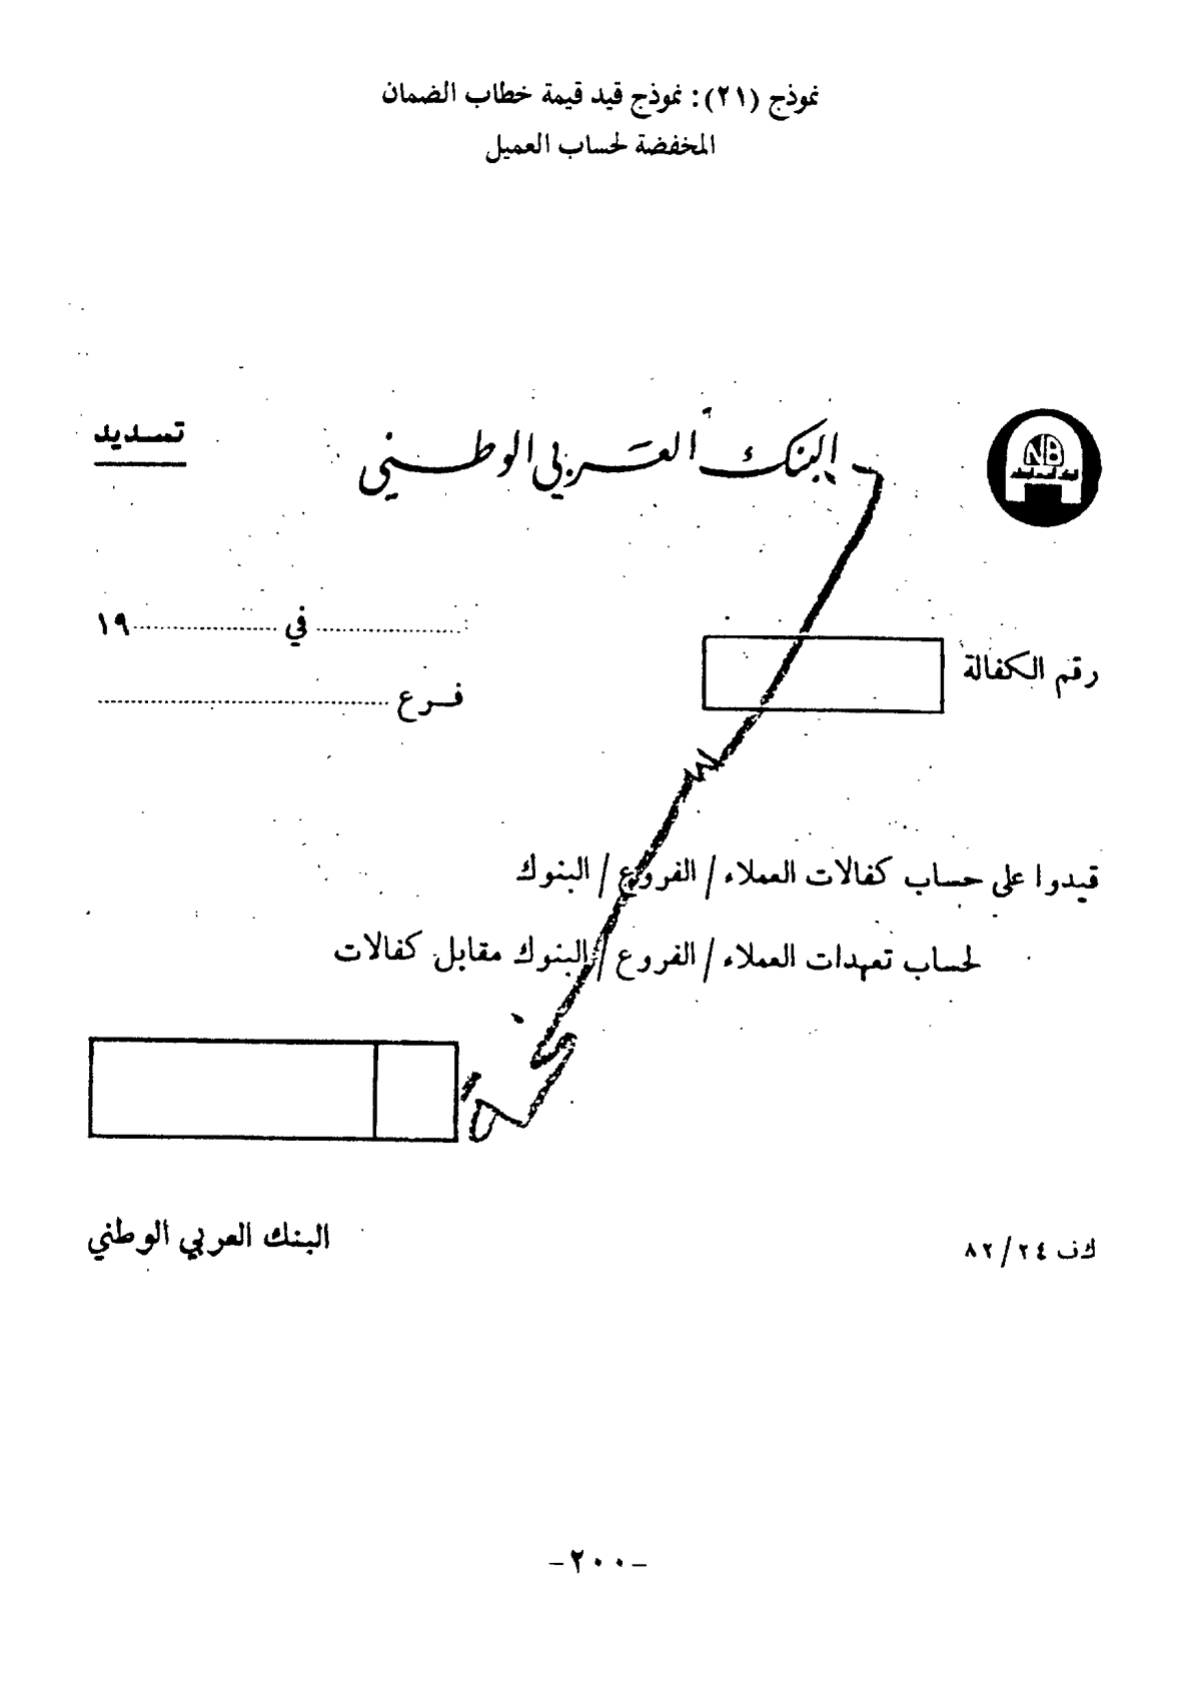 نموذج (٢١): نموذج قيد قيمة خطاب الضمان
المخفضة لحساب العميل
البنك العربي الوطني
تسديد
NB
في ١٩
رقم الكفالة
فرع
قيدوا على حساب كفالات العملاء / الفروع / البنوك
لحساب تعهدات العملاء / الفروع / البنوك مقابل كفالات
البنك العربي الوطني
كف ٨٢/٢٤
-٢٠٠-